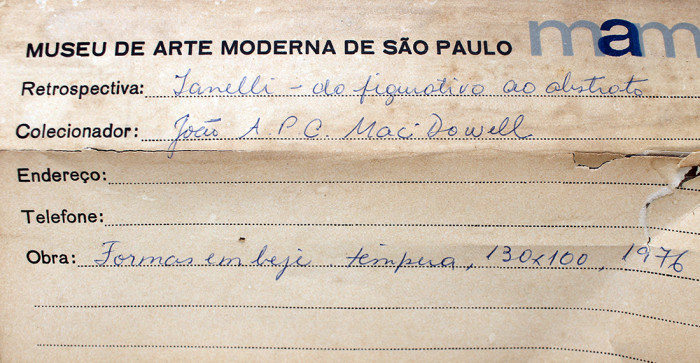 MUSEU DE ARTE MODERNA DE SÃO PAULO mam
Retrospectiva: Ianelli - do figurativo ao abstrato
Colecionador: João A.P.C. Maci Dowell
Endereço:
Telefone:
Obra: Formas em beje têmpera, 130x100, 1976